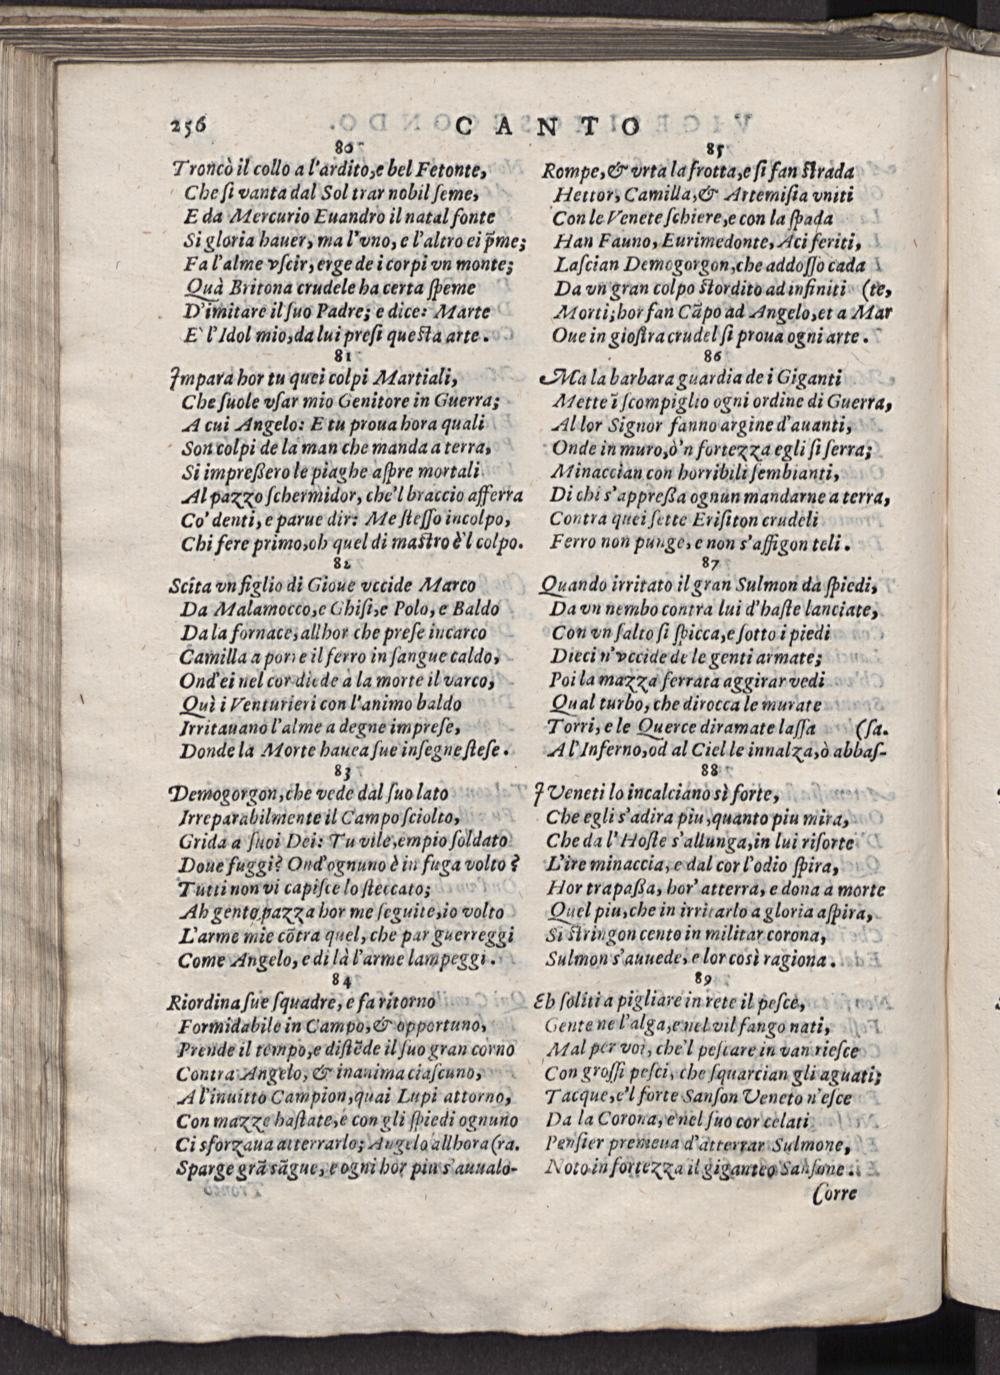 256 CANTO
80
Troncò il collo a l'ardito, e bel Fetonte,
Che ſi vanta dal Sol trar nobil ſeme,
E da Mercurio Euandro il natal fonte
Si gloria hauer, ma l'vno, e l'altro ei p̃me;
Fa l'alme vſcir, erge de i corpi vn monte;
Quà Britona crudele ha certa ſpeme
D'imitare il ſuo Padre; e dice: Marte
E' l'Idol mio, da lui preſi queſta arte.
81
Impara hor tu quei colpi Martiali,
Che ſuole vſar mio Genitore in Guerra;
A cui Angelo: E tu proua hora quali
Son colpi de la man che manda a terra,
Si impreßero le piaghe aſpre mortali
Al pazzo ſchermidor, che'l braccio afferra
Co' denti, e parue dir: Me ſteſſo incolpo,
Chi fere primo, oh quel di maſtro è'l colpo.
82
Scita vn figlio di Gioue vccide Marco
Da Malamocco, e Ghiſi, e Polo, e Baldo
Da la fornace, allhor che preſe incarco
Camilla a porre il ferro in ſangue caldo,
Ond'ei nel cor diede a la morte il varco,
Quì i Venturieri con l'animo baldo
Irritauano l'alme a degne impreſe,
Donde la Morte hauea ſue inſegne ſteſe.
83
Demogorgon, che vede dal ſuo lato
Irreparabilmente il Campo ſciolto,
Grida a ſuoi Dei: Tu vile, empio ſoldato
Doue fuggi? Ond'ognuno è in fuga volto?
Tutti non vi capiſce lo ſteccato;
Ah gente pazza hor me ſeguite, io volto
L'arme mie cõtra quel, che par guerreggi
Come Angelo, e di là l'arme lampeggi.
84
Riordina ſue ſquadre, e fa ritorno
Formidabile in Campo, & opportuno,
Prende il tempo, e diſtẽde il ſuo gran corno
Contra Angelo, & inanima ciaſcuno,
A l'inuitto Campion, quai Lupi attorno,
Con mazze haſtate, e con gli ſpiedi ognuno
Ci sforzaua atterrarlo; Angelo allhora (ra.
Sparge grã sãgue, e ogni hor piu s'auualo-
85
Rompe, & vrta la frotta, e ſi fan ſtrada
Hettor, Camilla, & Artemiſia vniti
Con le Venete ſchiere, e con la ſpada
Han Fauno, Eurimedonte, Aci feriti,
Laſcian Demogorgon, che addoſſo cada
Da vn gran colpo ſtordito ad infiniti (te,
Morti; hor fan Cãpo ad Angelo, et a Mar
Oue in gioſtra crudel ſi proua ogni arte.
86
Ma la barbara guardia de i Giganti
Mette ĩ ſcompiglio ogni ordine di Guerra,
Al lor Signor fanno argine d'auanti,
Onde in muro, ò'n fortezza egli ſi ſerra;
Minaccian con horribili ſembianti,
Di chi s'appreßa ognun mandarne a terra,
Contra quei ſette Eriſiton crudeli
Ferro non punge, e non s'affigon teli.
87
Quando irritato il gran Sulmon da ſpiedi,
Da vn nembo contra lui d'haſte lanciate,
Con vn ſalto ſi ſpicca, e ſotto i piedi
Dieci n'vccide de le genti armate;
Poi la mazza ferrata aggirar vedi
Qual turbo, che dirocca le murate
Torri, e le Querce diramate laſſa (ſa.
A l'Inferno, od al Ciel le innalza, ò abbaſ-
88
I Veneti lo incalciano sì forte,
Che egli s'adira piu, quanto piu mira,
Che da l'Hoſte s'allunga, in lui riſorte
L'ire minaccia, e dal cor l'odio ſpira,
Hor trapaßa, hor' atterra, e dona a morte
Quel piu, che in irritarlo a gloria aſpira,
Si ſtringon cento in militar corona,
Sulmon s'auuede, e lor così ragiona.
89
Eh ſoliti a pigliare in rete il peſce,
Gente ne l'alga, e nel vil fango nati,
Mal per voi, che'l peſcare in van rieſce
Con groſſi peſci, che ſquarcian gli aguati;
Tacque, e'l forte Sanſon Veneto n'eſce
Da la Corona, e nel ſuo cor celati
Penſier premeua d'atterrar Sulmone,
Noto in fortezza il giganteo Sanſone.
Corre